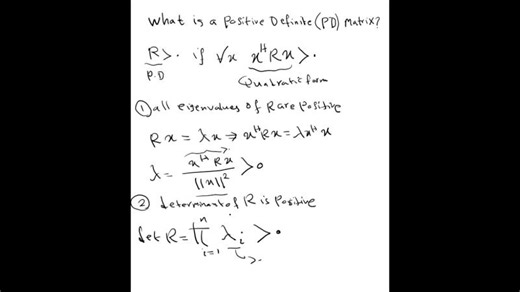 What is a Positive Definite (PD) Matrix?
R > 0 if ∀x x^H R x > 0
P.D
Quadratic form
① all eigenvalues of R are positive
R x = λx → x^H R x = λ x^H x
λ = x^H R x / ||x||² > 0
② determinant of R is positive
det R = ∏_{i=1}^{n} λ_i > 0
> 0